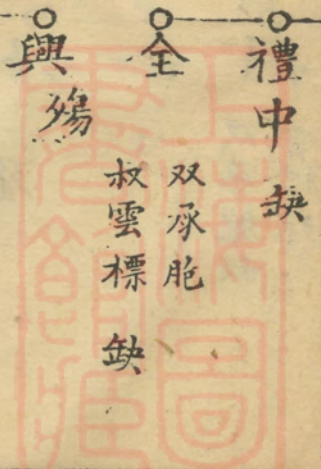 禮中 缺
全
双承胞
叔雲標 缺
興
殤